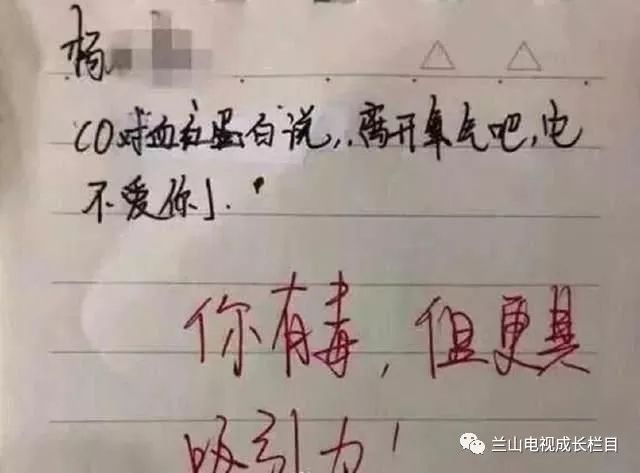 杨
CO对血红蛋白说,离开氧气吧,它
不爱你」.
你有毒,但更具
吸引力!
兰山电视成长栏目